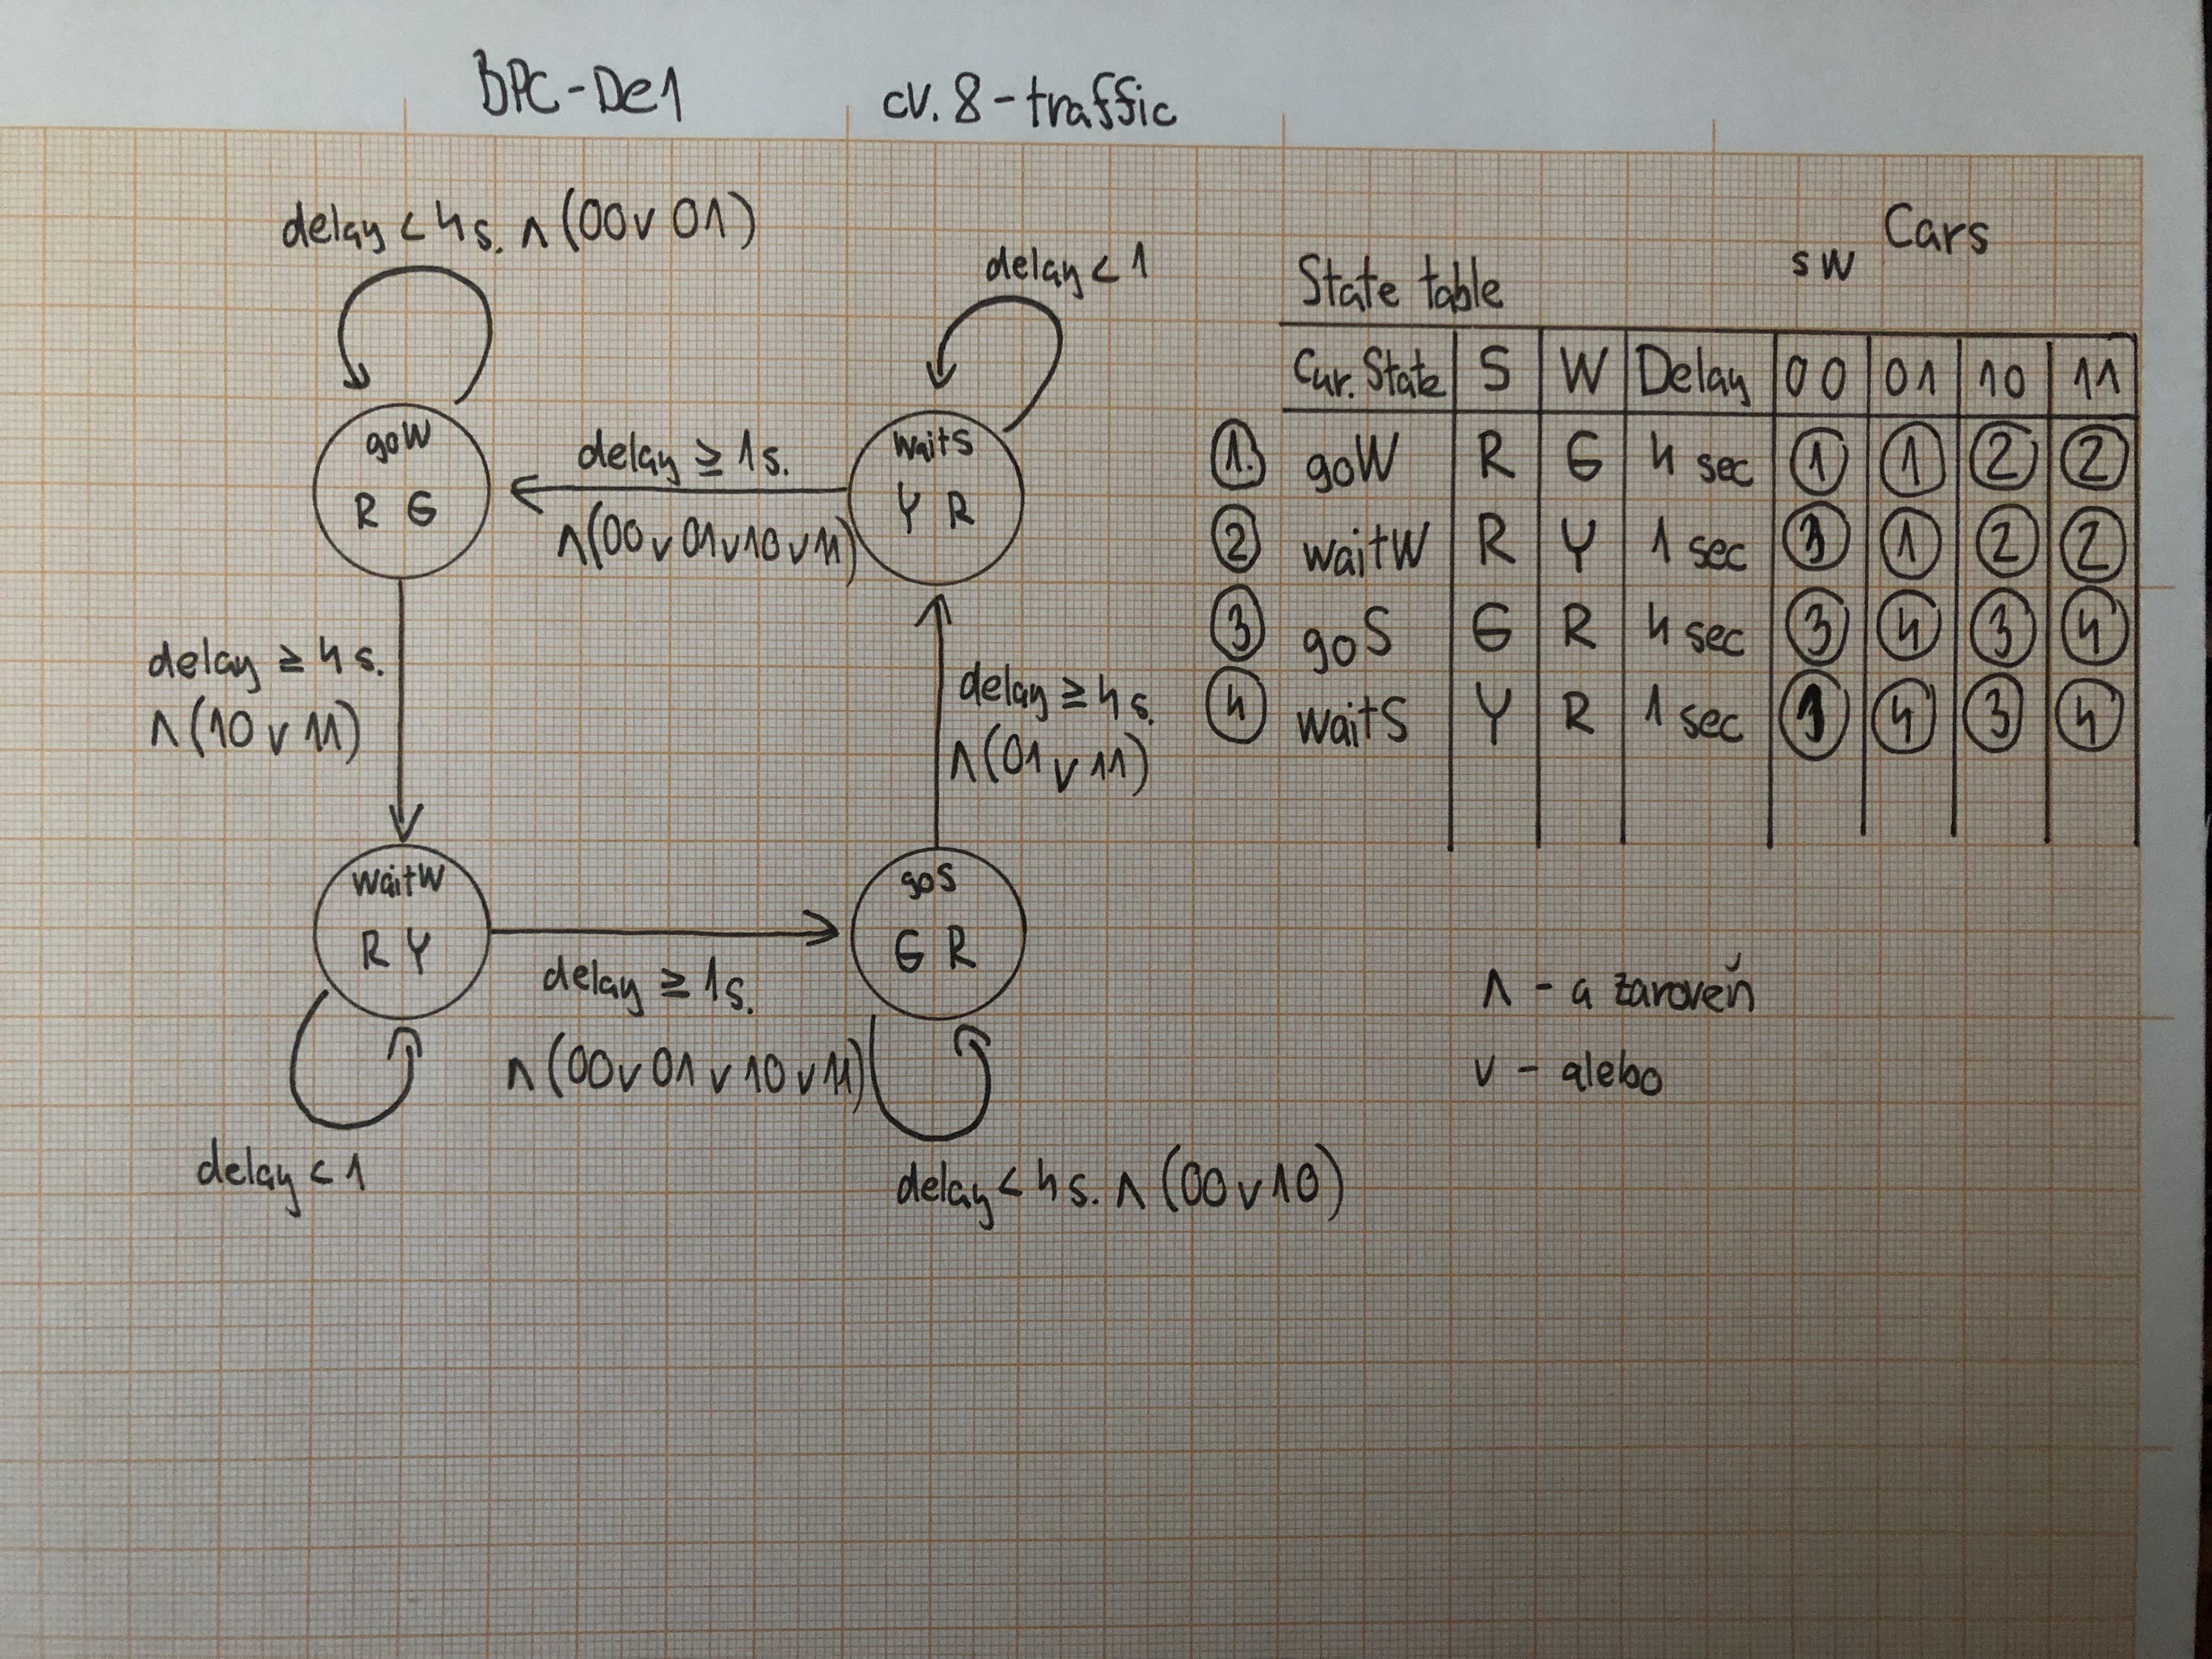 BPC-De1 cv. 8-traffic
delay < 4 s. ∧ (00 ∨ 01)
delay < 1
goW
R G
delay ≥ 1 s.
∧(00 ∨ 01 ∨ 10 ∨ 11)
waitS
Y R
delay ≥ 4 s.
∧ (10 ∨ 11)
delay ≥ 4 s.
∧ (01 ∨ 11)
waitW
R Y
delay ≥ 1 s.
∧ (00 ∨ 01 ∨ 10 ∨ 11)
goS
G R
delay < 1
delay < 4 s. ∧ (00 ∨ 10)
State table
sw Cars
Cur. State S W Delay 00 01 10 11
1. goW R G 4 sec 1 1 2 2
2 waitW R Y 1 sec 1 2 2
3 goS G R 4 sec 3 4 3 4
4 waitS Y R 1 sec 4 3 4
∧ - a zároveň
∨ - alebo